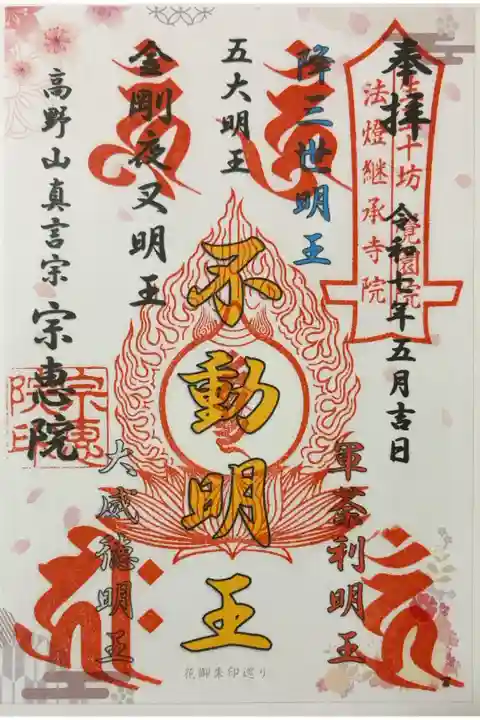 奉拝
令和七年五月吉日
法燈継承寺院
降三世明王
軍荼利明王
五大明王
不動明王
金剛夜叉明王
大威徳明王
高野山真言宗
宗恵院
宗恵
院印
花御朱印巡り